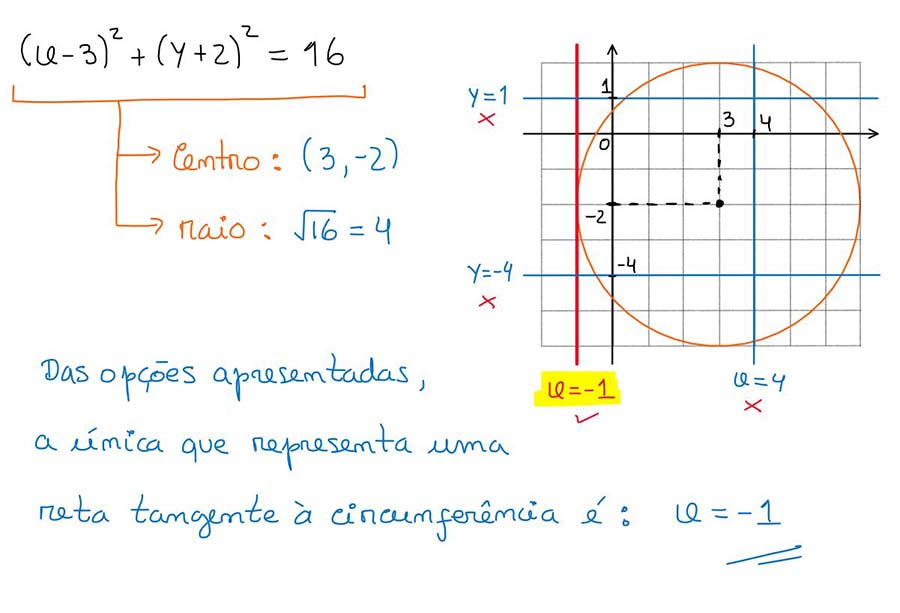 (x-3)² + (y+2)² = 16
Centro: (3,-2)
raio: √16 = 4
y=1
×
1
0
3
4
-2
y=-4
×
-4
x=-1
✓
x=4
×
Das opções apresentadas,
a única que representa uma
reta tangente à circunferência é: x = -1